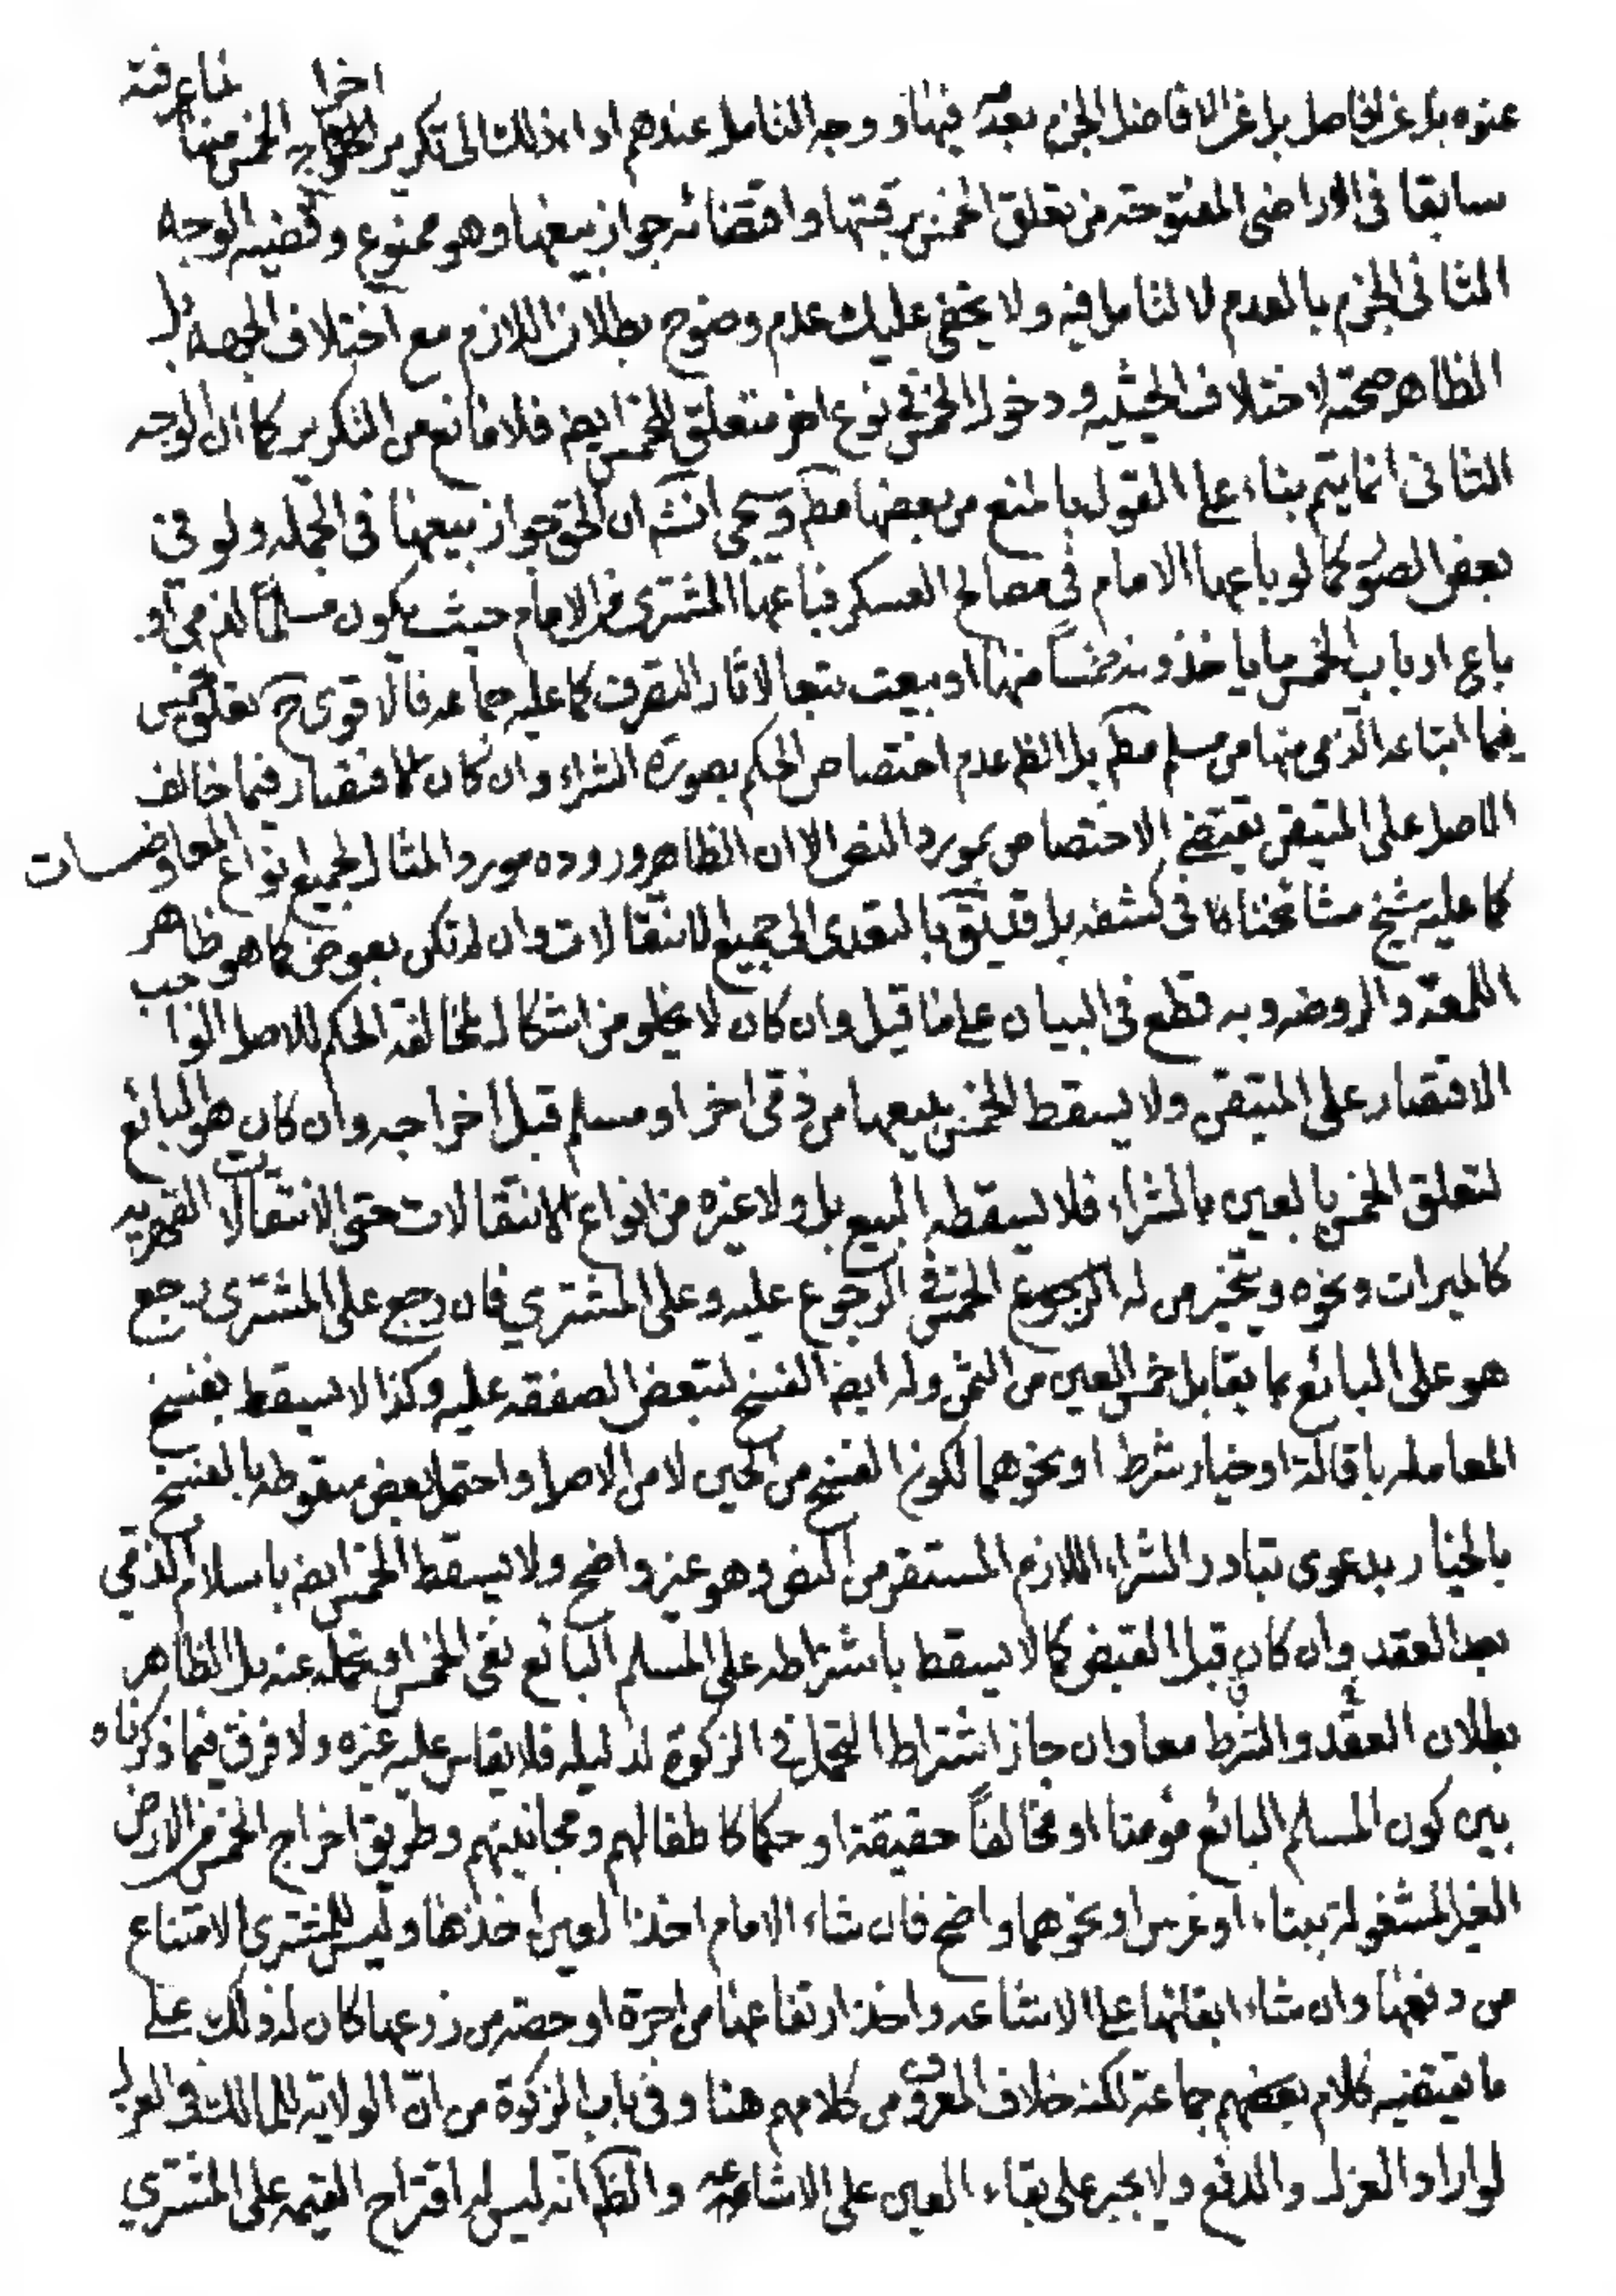 غيره بل عن الحاصل بل عن الافاضل الجزم بعده فيها و وجه التامل عندهم اداء ذلك الى تكرير اخراج الخمس منها لما عرفته
سابقا فى الاراضى المفتوحة من تعلق الخمس برقبتها و اقتضائه جواز بيعها وهو ممنوع و قضيه الوجه
الثانى الجزم بالعدم لا التامل فيه ولا يخفى عليك عدم وضوح بطلان اللازم مع اختلاف الجهه بل
الظاهر صحته لاختلاف الحيثيه ودخول الخمس فى نوع اخر متعلق للخمس ايضا فلا مانع من التكرير كما ان الوجه
الثانى انما يتم بناء على القول بالمنع من بعضها مطم وسيجى انش ان الحق جواز بيعها فى الجمله ولو فى
بعض الصور كما لو باعها الامام فى مصالح العسكر فباعها المشترى من الامام حيث يكون مسلما لذمى او
باع ارباب الخمس ما ياخذونه خمسا منها او بيعت تبعا لاثار التصرف كما عليه جماعه فالاقوى ح تعلق الخمس
فيما ابتاعه الذمى منها من مسلم مطم بل الظ عدم اختصاص الحكم بصورة الشراء وان كان الاقتصار فيما خالف
الاصل على المتيقن يقتضى الاختصاص بمورد النص الا ان الظاهر وروده مورد المثال لجميع انواع المعاوضات
كما عليه شيخ مشائخنا كا فى كشفه بل قد يق بالتعدى الى جميع الانتقالات وان لم تكن بعوض كما هو ظاهر
اللمعة والروضه وبه قطع فى البيان على ما قيل وان كان لا يخلو من اشكال لمخالفة الحكم للاصل الواجب
الاقتصار على المتيقن ولا يسقط الخمس ببيعها من ذمى اخر او مسلم قبل اخراجه وان كان هو البائع
لتعلق الخمس بالعين بالشراء فلا يسقطه البيع بل ولا غيره من انواع الانتقالات حتى الانتقالات القهريه
كالميراث ونحوه ويتخير من له الرجوع الخمس فى الرجوع عليه وعلى المشتري فان رجع على المشترى رجع
هو على البائع بما يقابل خمس العين من الثمن وله ايضا الفسخ لتبعض الصفقه عليه وكذا لا يسقط بفسخ
المعامله باقالة او خيار شرط او نحوهما لكون الفسخ من الحين لا من الاصل واحتمل بعض سقوطه بالفسخ
بالخيار بدعوى تبادر الشراء اللازم المستقر من النص وهو غير واضح ولا يسقط الخمس ايضا باسلام الذمى
بعد العقد وان كان قبل القبض كما لا يسقط باشتراطه على المسلم البائع نفى الخمس او تحمله عنه بل الظاهر
بطلان العقد والشرط معا وان جاز اشتراط التحمل فى الزكوة لدليله فلا يقاس عليه غيره ولا فرق فيما ذكرناه
بين كون المسلم البائع مؤمنا او مخالفا حقيقة او حكما كاطفالهم ومجانينهم وطريق اخراج الخمس من الارض
الغير المشغولة ببناء او غرس او نحوهما واضح فان شاء الامام اخذ العين اخذها وليس للمشترى الامتناع
من دفعها وان شاء ابقائها على الاشاعه واخذ ارتفاعها من اجرة او حصته من زرعها كان له ذلك على
ما يقتضيه كلام بعضهم جماعة لكنه خلاف المعروف من كلامهم هنا وفى باب الزكوة من انّ الولاية للمالك فى العزل
لو اراد العزل والدفع ولا يجبر على بقاء العين على الاشاعه والظ انه ليس له اقتراح القيمه على المشتري